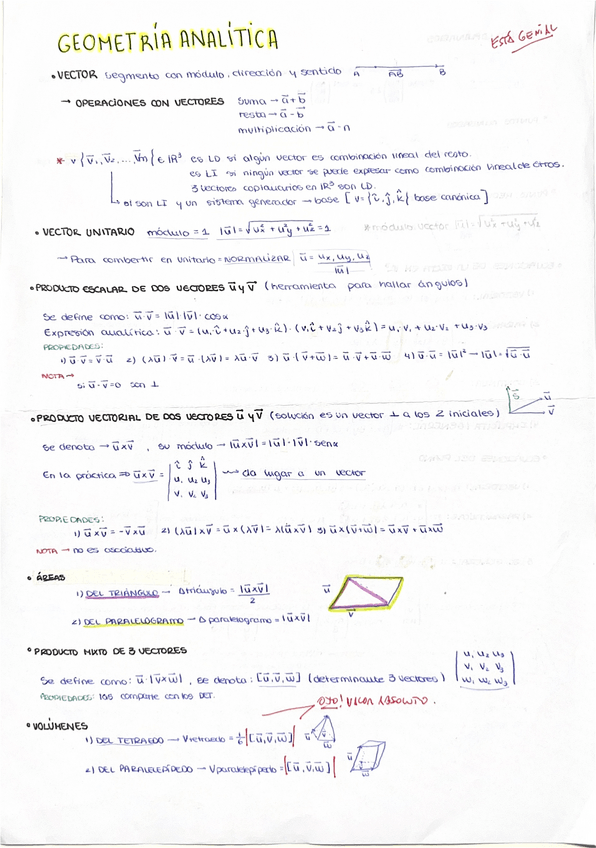 GEOMETRÍA ANALÍTICA
ESTÁ GENIAL
• VECTOR segmento con módulo, dirección y sentido A AB B
→ OPERACIONES CON VECTORES suma → a⃗ + b⃗
resta → a⃗ - b⃗
multiplicación → a⃗ · n
* v {v⃗₁, v⃗₂, ... v⃗n} ∈ ℝ³ es LD si algún vector es combinación lineal del resto.
es LI si ningún vector se puede expresar como combinación lineal de otros.
3 vectores coplanarios en ℝ³ son LD.
si son LI y un sistema generador → base [v = {î, ĵ, k̂} base canónica]
• VECTOR UNITARIO módulo = 1 |u⃗| = √u²x + u²y + u²z = 1 *módulo vector |u⃗| = √u²x + u²y + u²z
→ Para combertir en unitario = NORMALIZAR u⃗ = ux, uy, uz / |u⃗|
• PRODUCTO ESCALAR DE DOS VECTORES u⃗ y v⃗ (herramienta para hallar ángulos)
Se define como: u⃗ · v⃗ = |u⃗| · |v⃗| · cos α
Expresión analítica: u⃗ · v⃗ = (u₁ î + u₂ · ĵ + u₃ · k̂) · (v₁ î + v₂ ĵ + v₃ k̂) = u₁ · v₁ + u₂ · v₂ + u₃ · v₃
PROPIEDADES:
1) u⃗ · v⃗ = v⃗ · u⃗ 2) (λu⃗) · v⃗ = u⃗ · (λv⃗) = λu⃗ · v⃗ 3) u⃗ · (v⃗ + w⃗) = u⃗ · v⃗ + u⃗ · w⃗ 4) u⃗ · u⃗ = |u⃗|² → |u⃗| = √u⃗ · u⃗
NOTA →
si u⃗ · v⃗ = 0 son ⊥
• PRODUCTO VECTORIAL DE DOS VECTORES u⃗ y v⃗ (solución es un vector ⊥ a los 2 iniciales) s⃗ u⃗ v⃗
Se denota → u⃗ x v⃗ , su módulo → |u⃗ x v⃗| = |u⃗| · |v⃗| · sen α
En la práctica ⇒ u⃗ x v⃗ = | î ĵ k̂ | → da lugar a un vector
u₁ u₂ u₃
v₁ v₂ v₃
PROPIEDADES:
1) u⃗ x v⃗ = -v⃗ x u⃗ 2) (λu⃗) x v⃗ = u⃗ x (λv⃗) = λ(u⃗ x v⃗) 3) u⃗ x (v⃗ + w⃗) = u⃗ x v⃗ + u⃗ x w⃗
NOTA → no es asociativo.
• ÁREAS
1) DEL TRIÁNGULO → Δ triángulo = |u⃗ x v⃗| / 2 u⃗ v⃗
2) DEL PARALELOGRAMO → Δ paralelogramo = |u⃗ x v⃗|
• PRODUCTO MIXTO DE 3 VECTORES
Se define como: u⃗ · |v⃗ x w⃗| , se denota: [u⃗, v⃗, w⃗] (determinante 3 vectores) | u₁ u₂ u₃ |
v₁ v₂ v₃
w₁ w₂ w₃
PROPIEDADES: las comparte con los DET.
OJO! VALOR ABSOLUTO.
• VOLÚMENES
1) DEL TETRAEDO → V tetraedo = 1/6 |[u⃗, v⃗, w⃗]| u⃗ v⃗ w⃗
2) DEL PARALELEPÍPEDO → V paralelepíperlo = |[u⃗, v⃗, w⃗]| u⃗ v⃗ w⃗